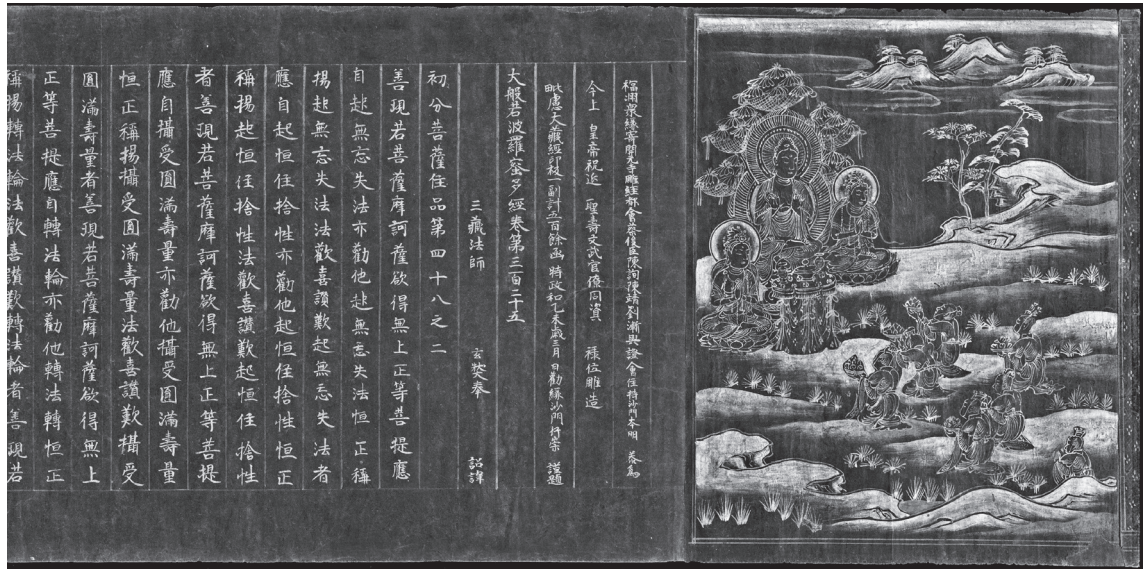 福州衆緣寄開元寺雕經都會蔡俊臣陳詢陳靖劉漸與證會住持沙門本明 恭為
今上 皇帝祝延 聖壽文武官僚同資 祿位雕造
毗盧大藏經印板一副計五百餘函 時政和乙未歲三月 日勸緣沙門行崇 謹題
大般若波羅蜜多經卷第三百二十五
三藏法師 玄奘奉 詔譯
初分菩薩住品第四十八之二
善現若菩薩摩訶薩欲得無上正等菩提應
自起無忘失法亦勸他起無忘失法恒正稱
揚起無忘失法法歡喜讚歎起無忘失法者
應自起恒住捨性亦勸他起恒住捨性恒正
稱揚起恒住捨性法歡喜讚歎起恒住捨性
者善現若菩薩摩訶薩欲得無上正等菩提
應自攝受圓滿壽量亦勸他攝受圓滿壽量
恒正稱揚攝受圓滿壽量法歡喜讚歎攝受
圓滿壽量者善現若菩薩摩訶薩欲得無上
正等菩提應自轉法輪亦勸他轉法轉恒正
稱揚轉法輪法歡喜讚歎轉法輪者善現若